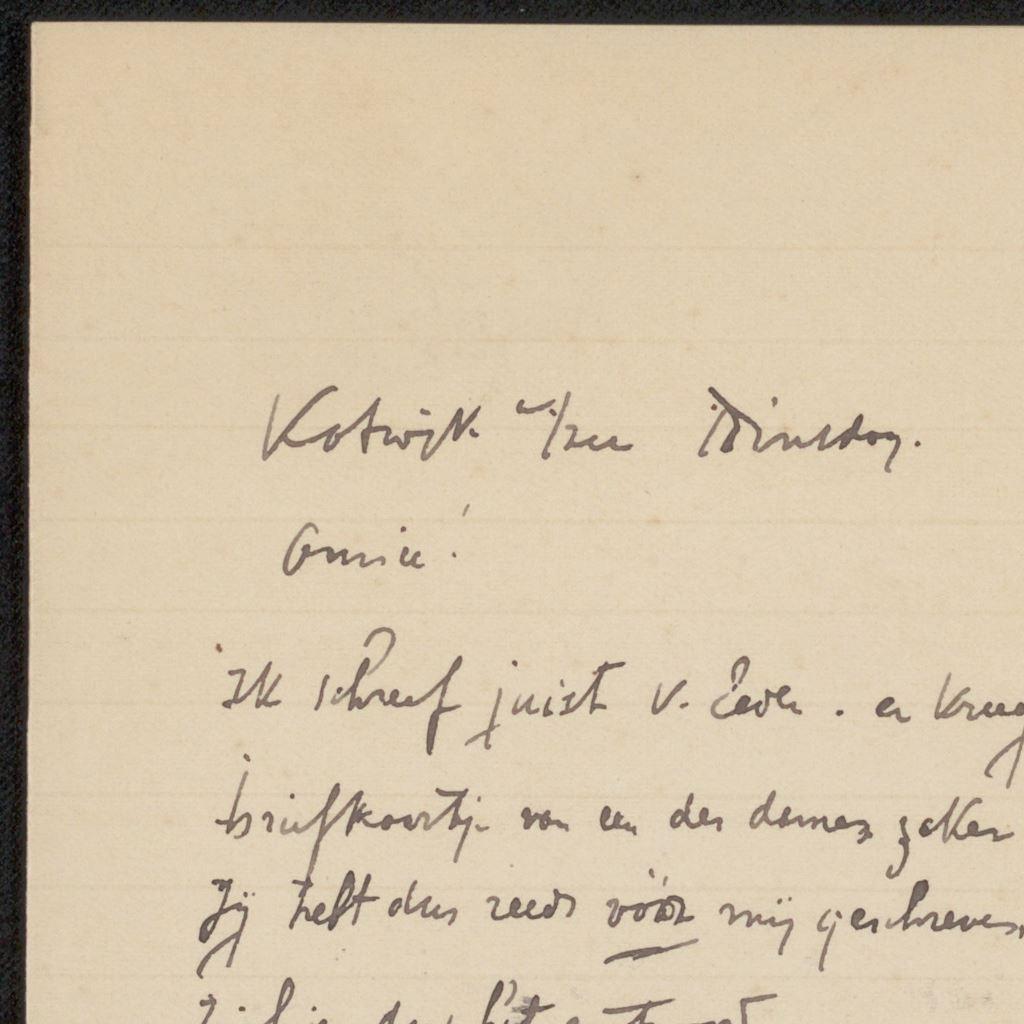 Katwijk a/zee Dinsdag.
Amice!
Ik schreef juist v. Eeden. en kreeg
briefkaartje van een der dames zaken
Jij hebt dus reeds vóór mij geschreven